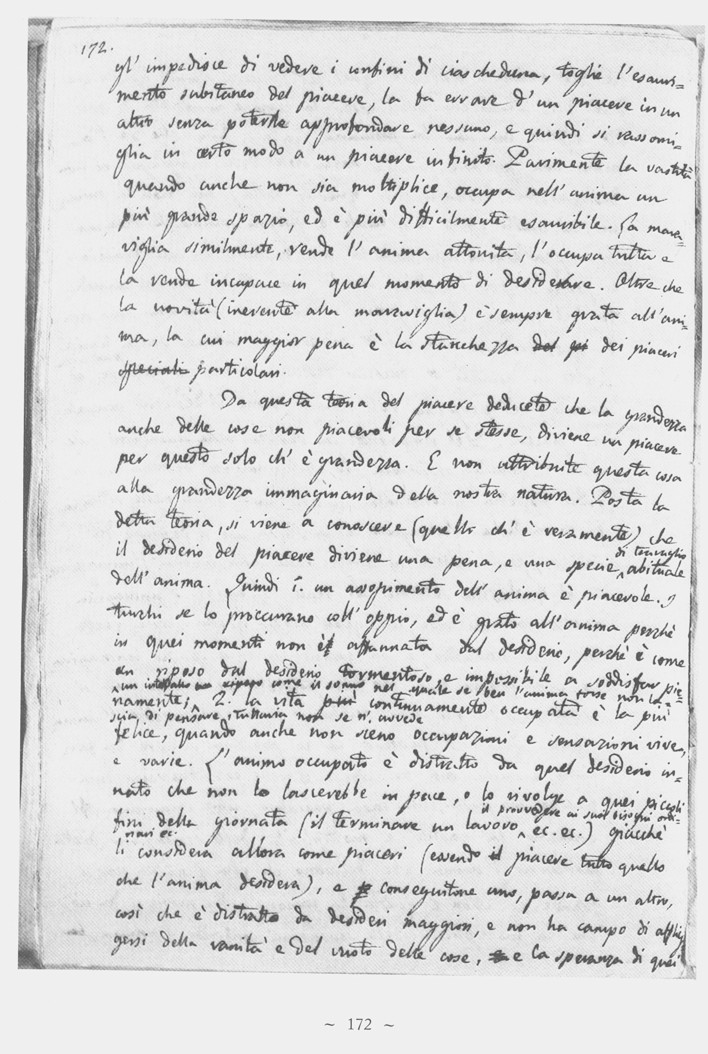 172.
gl' impedisce di vedere i confini di ciascheduna, toglie l'esauri-
mento subitaneo del piacere, la fa errare d'un piacere in un
altro senza poterne approfondare nessuno, e quindi si rassomi-
glia in certo modo a un piacere infinito. Parimente la vastità
quando anche non sia moltiplice, occupa nell'anima un
più grande spazio, ed è più difficilmente esauribile. La mara-
viglia similmente, rende l'anima attonita, l'occupa tutta e
la rende incapace in quel momento di desiderare. Oltre che
la novità (inerente alla maraviglia) è sempre grata all'ani-
ma, la cui maggior pena è la stanchezza del pi dei piaceri
speciali particolari.
Da questa teoria del piacere deducete che la grandezza
anche delle cose non piacevoli per se stesse, diviene un piacere
per questo solo ch'è grandezza. E non attribuite questa cosa
alla grandezza immaginaria della nostra natura. Posta la
detta teoria, si viene a conoscere (quello ch'è veramente) che
il desiderio del piacere diviene una pena, e una specie
di travaglio
abituale
dell'anima. Quindi 1. un assopimento dell'anima è piacevole. I
turchi se lo proccurano coll'oppio, ed è grato all'anima perchè
in quei momenti non è affannata dal desiderio, perchè è come
un riposo dal desiderio tormentoso, e impossibile a soddisfar pie-
un intervallo come il sonno nel quale se ben l'anima forse non la-
namente; 2. la vita più continuamente occupata è la più
scia di pensare, tuttavia non se n'avvede
felice, quando anche non sieno occupazioni e sensazioni vive,
e varie. L'animo occupato è distratto da quel desiderio in-
nato che non lo lascerebbe in pace, o lo rivolge a quei piccoli
fini della giornata (il terminare un lavoro
il provvedere ai suoi bisogni ordi-
narii ec.
ec. ec.) giacchè
li considera allora come piaceri (essendo il piacere tutto quello
che l'anima desidera), e conseguitone uno, passa a un altro,
così che è distratto da desideri maggiori, e non ha campo di afflig-
gersi della vanità e del vuoto delle cose, e la speranza di quei
~ 172 ~